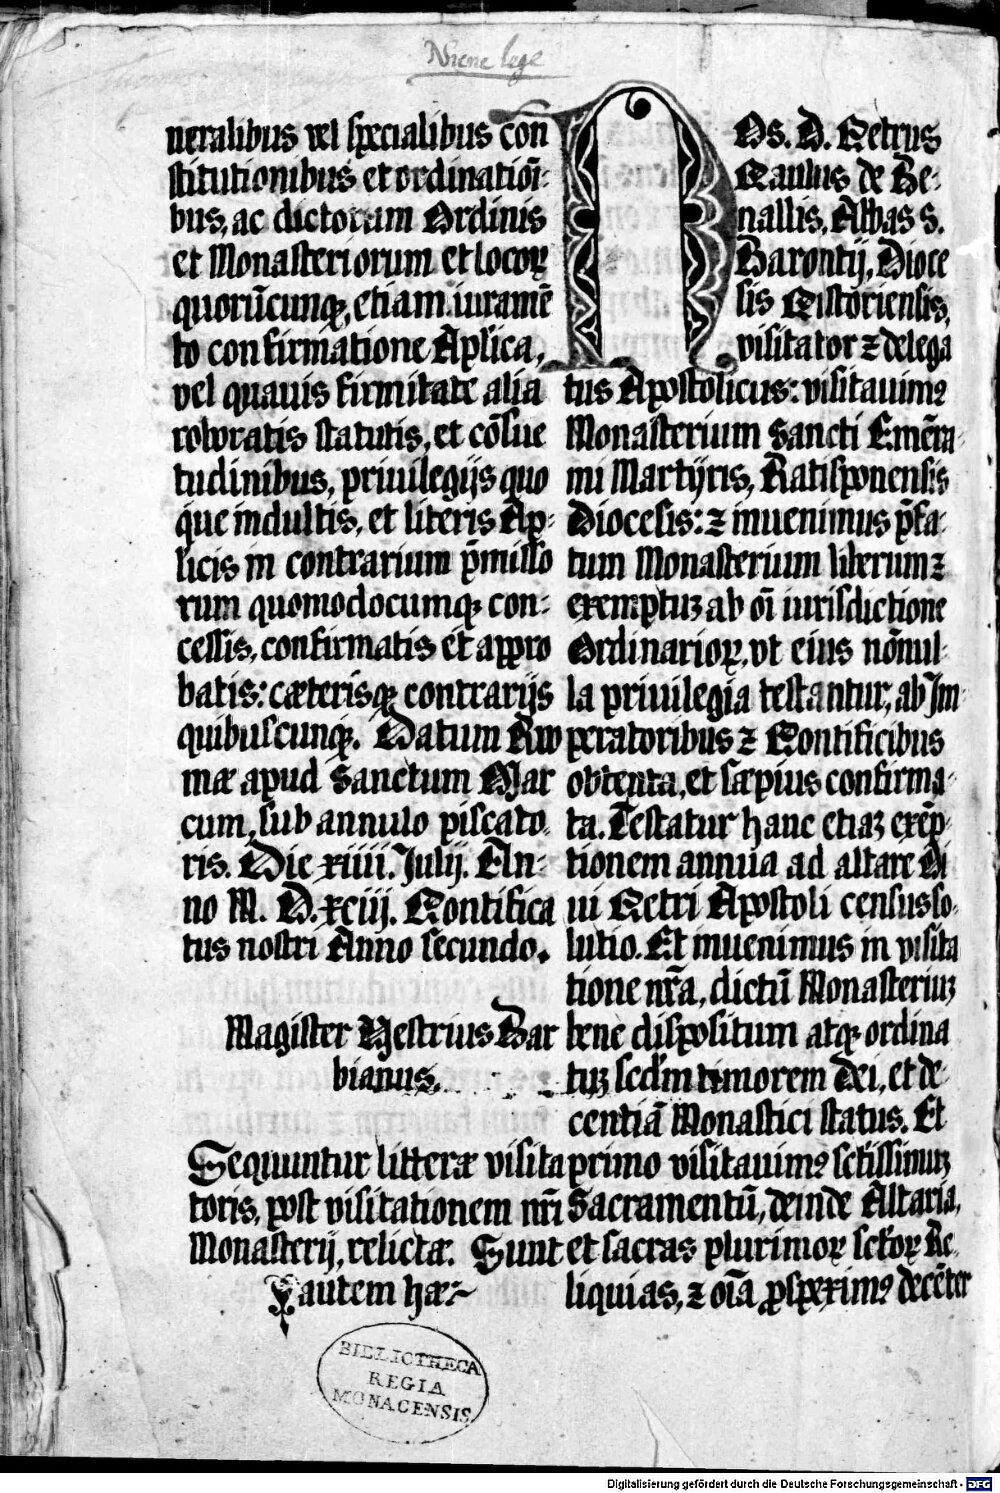 Niene lege
neralibus vel specialibus con
stitutionibus et ordinatiōi-
bus, ac dictorum Ordinis
et Monasteriorum et locoꝝ
quorūcunqꝫ, etiam iuramē
to confirmatione Aplica,
vel quauis firmitate alia
roboratis statutis, et cōsue
tudinibus, priuilegijs quo
que indultis, et literis Ap-
licis in contrarium p̄misso
rum quomodocumqꝫ con-
cessis, confirmatis et appro
batis: cæterisqꝫ contrarijs
quibuscunqꝫ. Datum Ro
mæ apud Sanctum Mar
cum, sub annulo piscato
ris. Die xiiii. Julij. An-
no M. D. xciij. Pontifica
tus nostri Anno secundo.
Magister Vestrius Bar
bianus.
Sequuntur litteræ visita
toris, post visitationem nr̄i
Monasterij, relictæ. Sunt
autem hæ:~
NOs. D. Petrus
Paulus de Be-
nallis, Abbas S.
Barontij, Dioce
sis Pistoriensis,
visitator ⁊ delega
tus Apostolicus: visitauimꝰ
Monasterium Sancti Emēra-
mi Martijris, Ratisponensis
Diocesis: ⁊ inuenimus p̄fa-
tum Monasterium liberum ⁊
exemptuꝫ ab oī iurisdictione
Ordinarioꝝ, vt eius nōnul-
la priuilegia testantur, ab Im-
peratoribus ⁊ Pontificibus
obtenta, et sæpius confirma-
ta. Testatur hanc etiaꝫ exēp-
tionem annua ad altare Di
ui Petri Apostoli census so-
lutio. Et inuenimus in visita
tione nr̄a, dictū Monasteriuꝫ
bene dispositum atqꝫ ordina
tuꝫ scd̄m timorem Dei, et de-
centiā Monastici status. Et
primo visitauimꝰ sct̄issimuꝫ
Sacramentū, deinde Altaria,
et sacras plurimoꝝ sct̄oꝝ Re-
liquias, ⁊ oīa ꝑspeximꝰ decēter
BIBLIOTHECA
REGIA
MONACENSIS
Digitalisierung gefördert durch die Deutsche Forschungsgemeinschaft - DFG